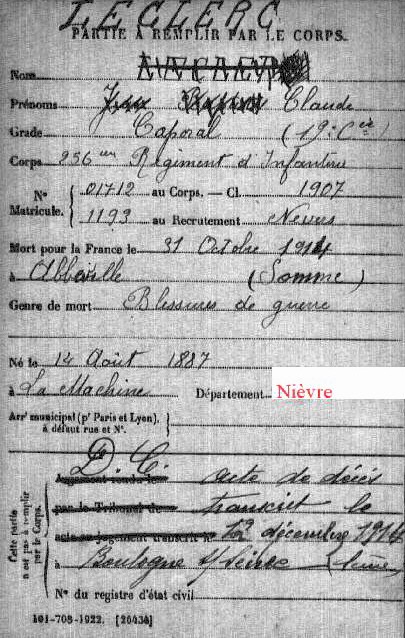 LECLERC
PARTIE À REMPLIR PAR LE CORPS.
Nom
Prénoms Jean Claude
Grade Caporal (19e Cie)
Corps 256eme Régiment d'Infanterie
N° Matricule. { 01712 au Corps. — Cl. 1907
1193 au Recrutement Nevers
Mort pour la France le 31 Octobre 1914
à Abbeville (Somme)
Genre de mort Blessures de guerre
Né le 14 Août 1887
à La Machine Département Nièvre
Arrt municipal (pr Paris et Lyon), à défaut rue et N°.
Cette partie n'est pas à remplir par le Corps.
D. C.
Jugement rendu le acte de décès
par le Tribunal de transcrit le
acte ou jugement transcrit le 12 décembre 1914
à Boulogne s/Seine (Seine)
N° du registre d'état civil
101-708-1922. [26434]